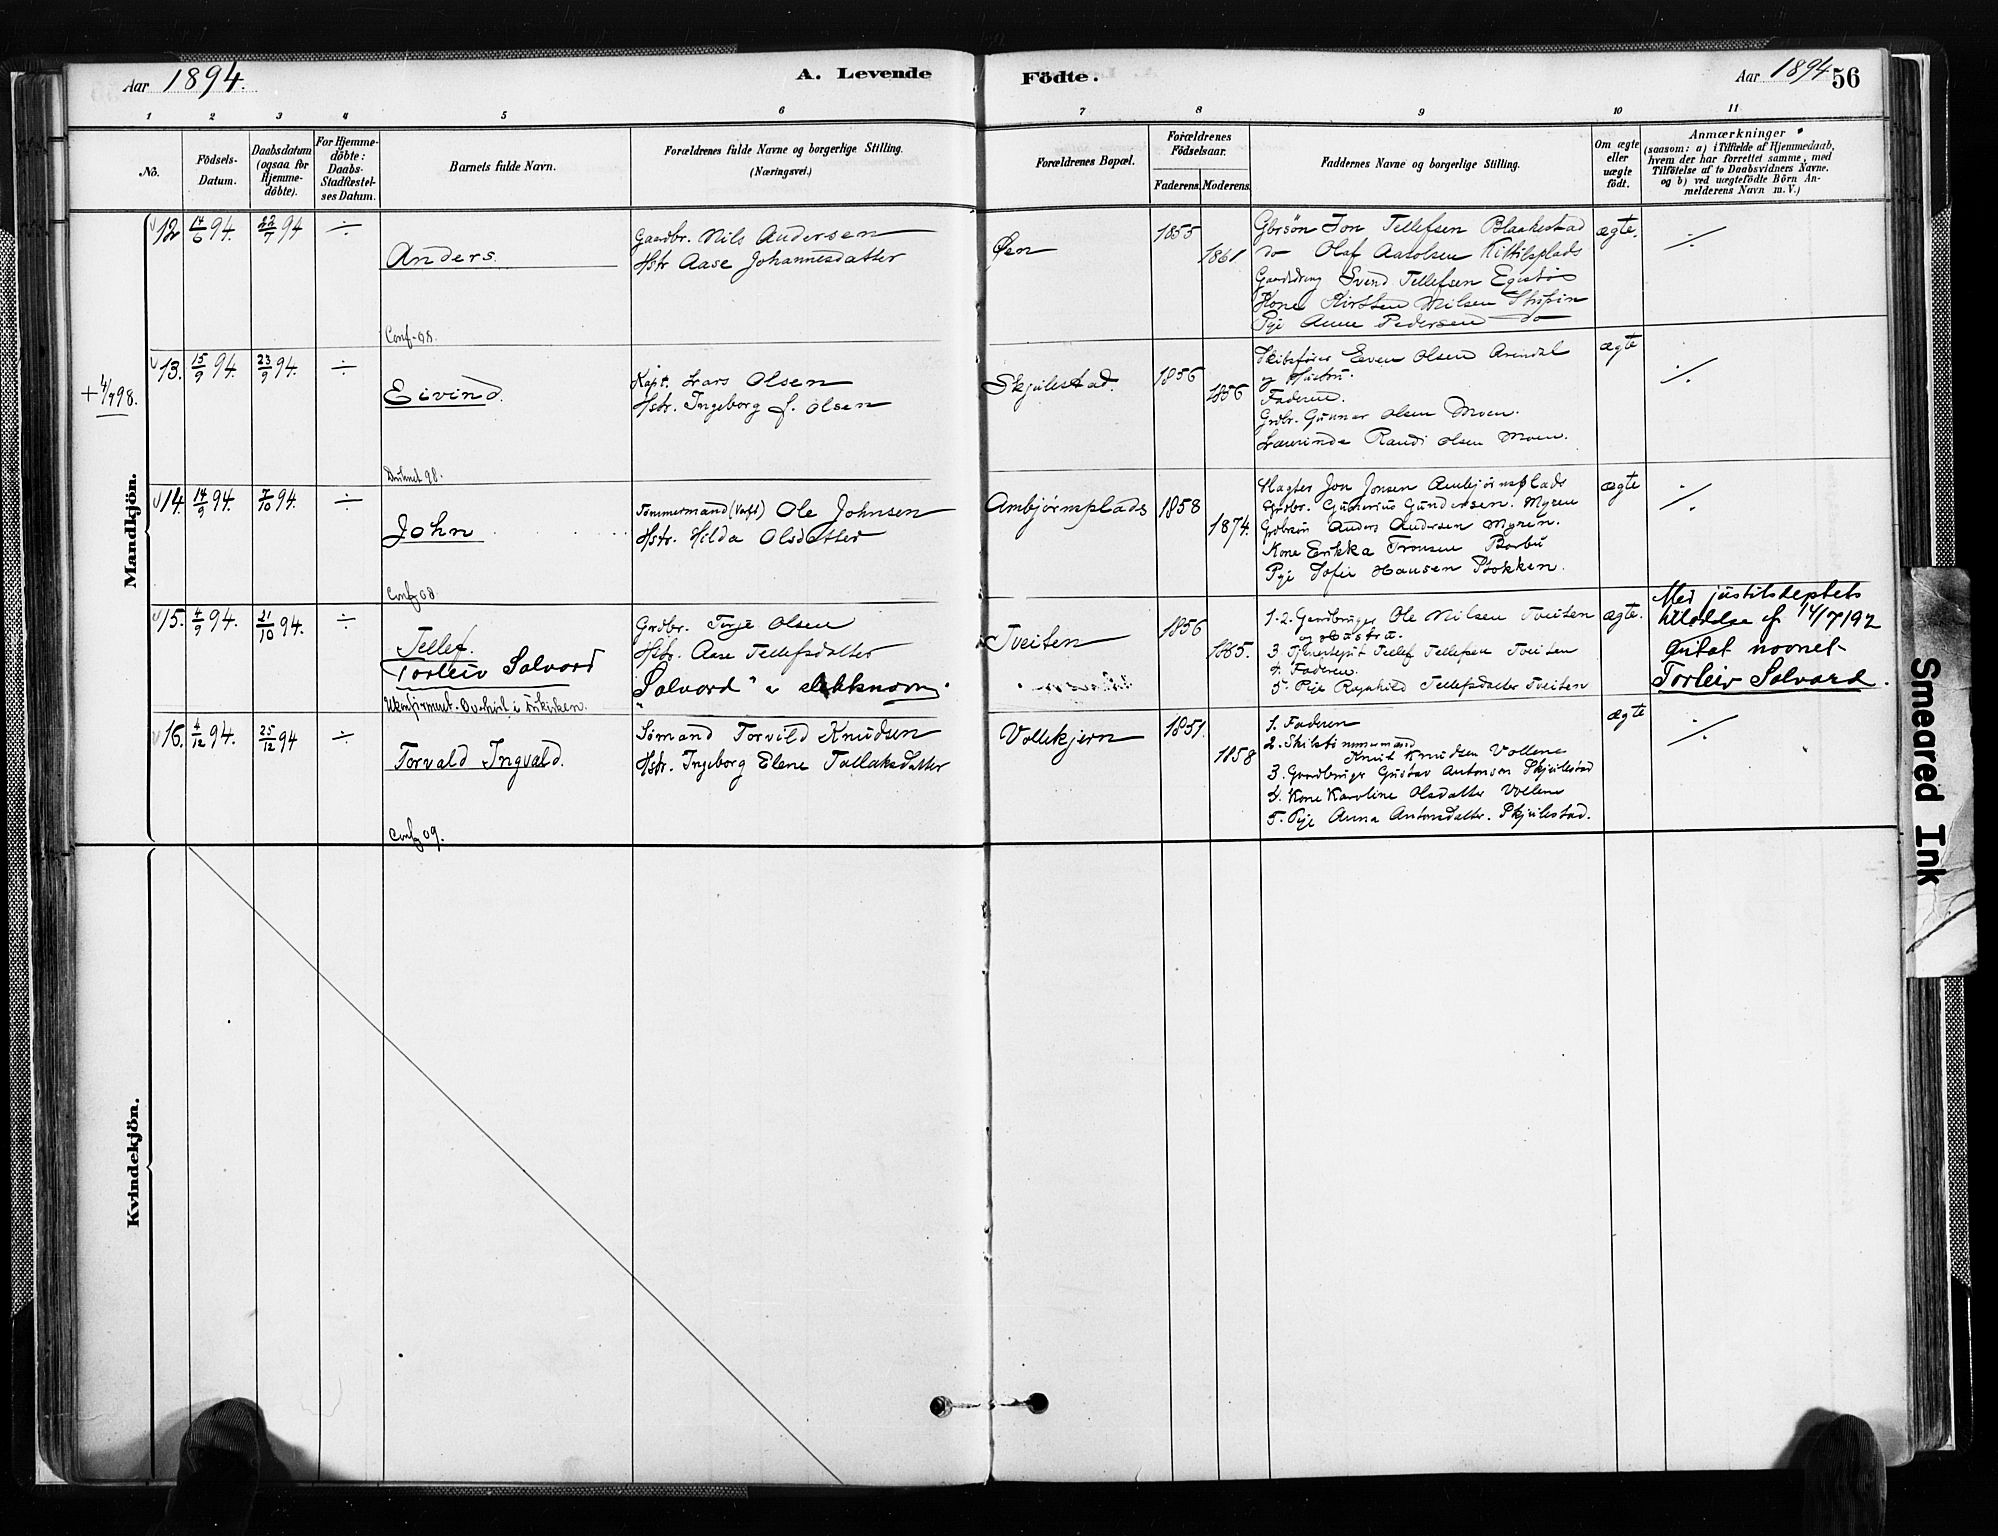 Aar 1894.
A. Levende Födte.
Aar 1894 56
1 2 3 4 5 6 7 8 9 10 11
No.
Födsels-
Datum.
Daabsdatum
(ogsaa for
Hjemme-
döbte).
For Hjemme-
döbte:
Daabs-
Stadfæstel-
ses Datum.
Barnets fulde Navn.
Forældrenes fulde Navne og borgerlige Stilling.
(Næringsvei.)
Forældrenes Bopæl.
Forældrenes
Födselsaar.
Faderens. Moderens.
Faddernes Navne og borgerlige Stilling.
Om ægte
eller
uægte
født.
Anmærkninger
(saasom: a) i Tilfælde af Hjemmedaab,
hvem der har forrettet samme, med
Tilföielse af to Daabsvidners Navne.
og b) ved uægtefödte Börn An-
melderens Navn m. V.)
Mandkjön.
12 14/6 94. 22/7 94 ÷
Anders.
Conf. 08.
Gaardbr. Nils Andersen
Hstr Aase Johannesdatter
Øen
1855
1861
Gbrsøn Jon Tellefsen Blaakestad
do Olaf Aasolsen Kittilsplads
Svend Tellefsen
Kone Kirsten Nilsen
Pige Anne Pedersen do
ægte.
÷
+ 4/7 98.
13. 15/9 94. 23/9 94. ÷
Eivind
98.
Kapt. Lars Olsen
Hstr. Ingeborg J. Olsen
Skjulestad.
1856
1856
Skibsfører Even Olsen Arendal
og Hustru.
Faderen.
Grdbr. Gunnar Olsen Moen.
Randi Olsen Moen.
ægte
÷
14. 14/9 94. 7/10 94. ÷
John
Conf 08
Tømmermand (Værft) Ole Johnsen
Hstr. Hilda Olsdatter
Ambjørnsplads
1858
1874.
Jon Jonsen Ambjørnsplads
Grdbr. Gunerius Gundersen. Myren
Grdbrsøn Anders Andersen Myren.
Kone Erikka Tronsen Barbu
Pige Sofie Hansen Stokken.
ægte
÷
15. 4/9 94. 21/10 94. ÷
Tellef.
Torleiv Solvord
Ukonfirmeret.
Grdbr. Terje Olsen
Hstr. Aase Tellefsdatter
"Solvord" er slektsnavn.
Tveiten
1856
1865.
1-2. Gaardbruger Ole Nilsen Tveiten
og Hustru.
3 Tellef Tellefsen Tveiten
4. Faderen.
5. Pige Ragnhild Tellefsdatter Tveiten
ægte.
Med justitsdeptets
tilladelse af 14/7 192
antat navnet
Torleiv Solvord.
16. 4/12 94. 25/12 94 ÷
Torvald Ingvald.
Conf 09.
Sömand Torvild Knudsen
Hstr. Ingeborg Elene Tallaksdatter
Vollekjern
1851.
1858
1. Faderen
2. Skibstømmermand
Knut Knudsen Vollene
3. Gaardbruger Gustav Antonsen Skjulestad
4. Kone Karoline Olsdatter Vollene
5. Pige Anna Antonsdatter. Skjulestad.
ægte
÷
Kvindekjön.
Smeared Ink